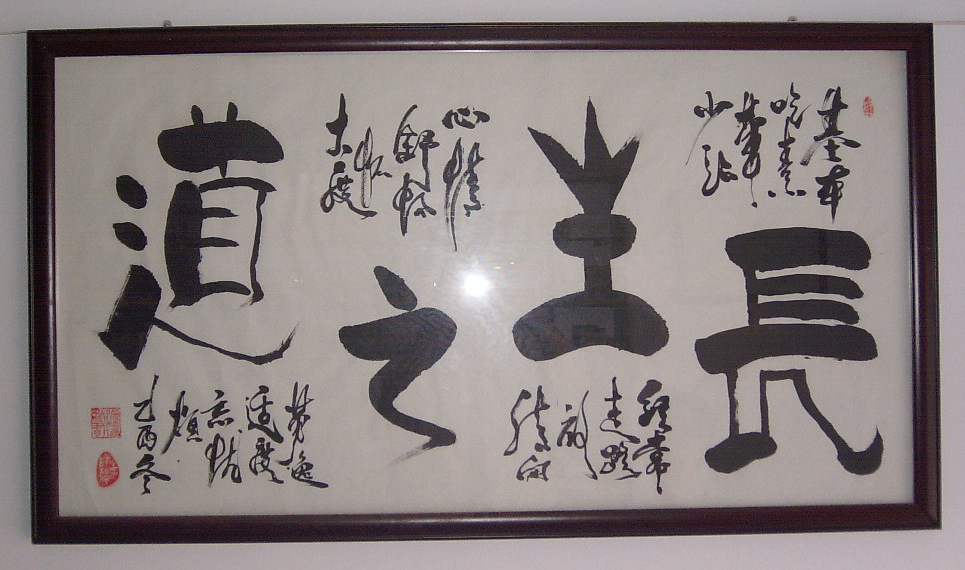 長生之道
基本
吃素
葷
少沾
經常
走路
心情
舒暢
大度
勞逸
適度
忘忧
烦
乙酉冬